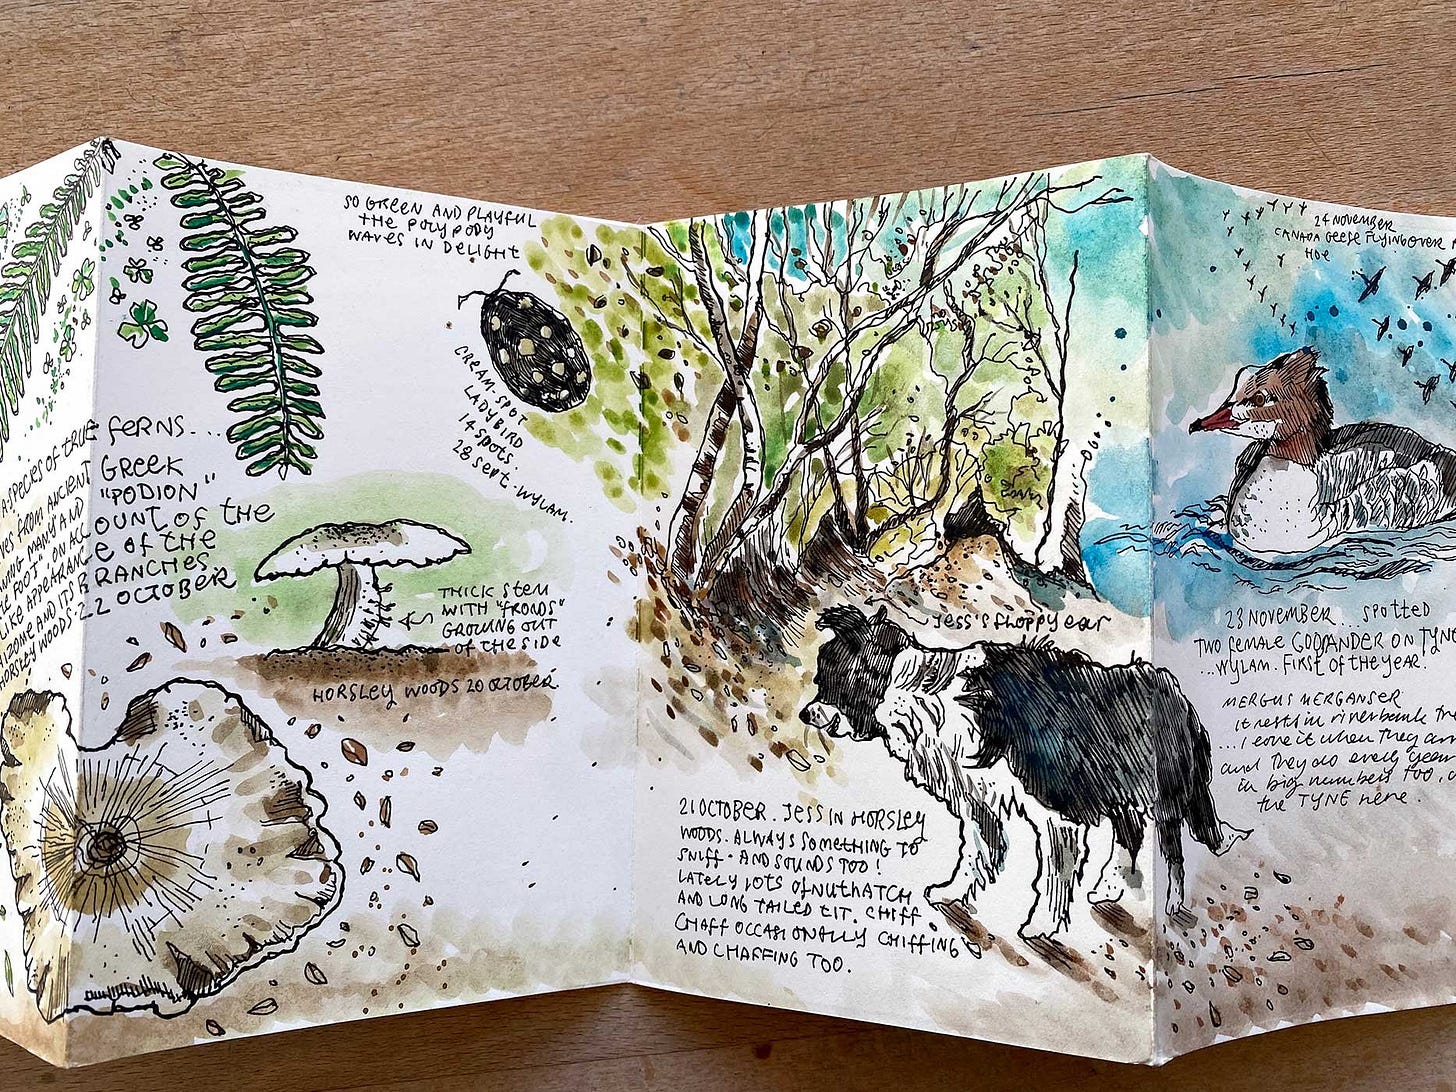 SO GREEN AND PLAYFUL
THE POLYPODY
WAVES IN DELIGHT
CREAM-SPOT
LADYBIRD
14 SPOTS.
28 SEPT. WYLAM.
A SPECIES OF TRUE FERNS...
FROM ANCIENT GREEK
"PODION"
FOOT" ON ACCOUNT OF THE
LIKE APPEARANCE OF THE
RHIZOME AND ITS BRANCHES.
HORSLEY WOODS. 22 OCTOBER
THICK STEM
WITH "FRONDS"
GROWING OUT
OF THE SIDE
HORSLEY WOODS 20 OCTOBER
JESS'S FLOPPY EAR
21 OCTOBER. JESS IN HORSLEY
WOODS. ALWAYS SOMETHING TO
SNIFF - AND SOUNDS TOO!
LATELY LOTS OF NUTHATCH
AND LONG TAILED TIT. CHIFF
CHAFF OCCASIONALLY CHIFFING
AND CHAFFING TOO.
24 NOVEMBER
CANADA GEESE FLYING OVER
HOE
23 NOVEMBER... SPOTTED
TWO FEMALE GOOSANDER ON TYNE
...WYLAM. FIRST OF THE YEAR.
MERGUS MERGANSER
it nests in riverbank
...I love it when they
and they do every year
in big numbers too,
the TYNE here.